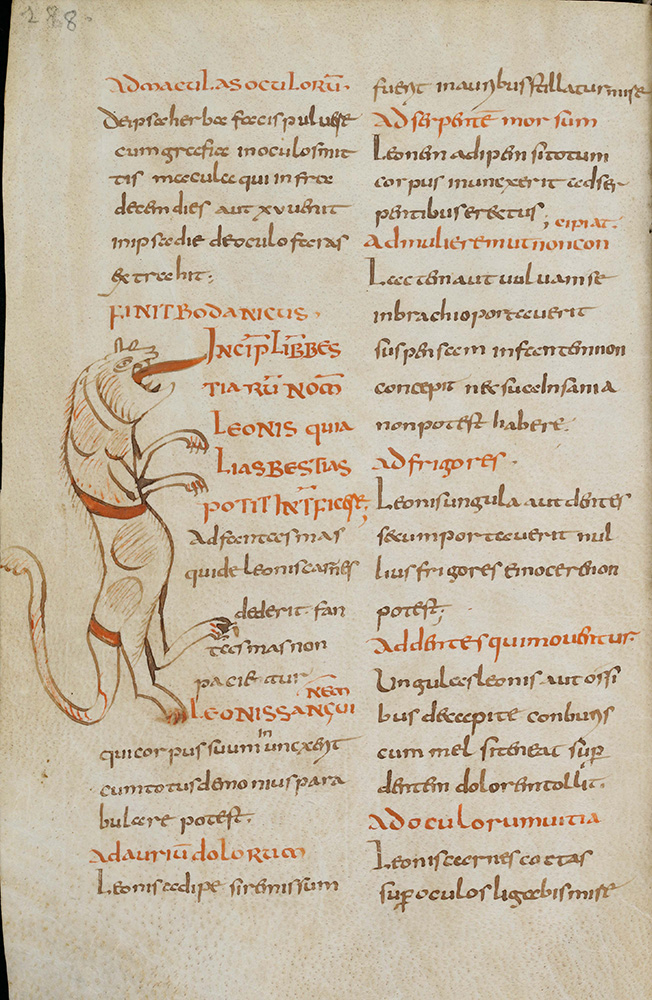 288.
ad maculas oculorū.
de ipsa herba facis puluere
cum grafia in oculos mit
tis macula qui infra
decem dies aut xv uenit
in ipsa die de oculo foras
extrahit;
FINIT BODANICUS.
INCIP LIB BES
TIARŪ NOM
LEONIS quia
LIAS BESTIAS
POTIT INTFICERE;
Ad fantasmas
qui de leonis carnes
dederit fan
tasmas non
pacietur
LEONIS SANGUI NEM
qui corpus suum inunxerit
cum totus demonius para
bulare potest;
ad auriū dolorum
Leonis adipe si remissum
fuerit in auribus stillatur mire
Ad serpentē morsum
Leonem adipem si totum
corpus inunxerit ad ser
pentibus erectus;
ad mulierem ut non con cipiat.
Lactem aut uuluam se
in brachio portauerit
suspensam infantem non
concepit nec sucel insania
non potest habere.
ad frigores.
Leonis ungula aut dentes
secum portauerit nul
lius frigores ei nocere non
potest;
ad dentes qui mouentur.
Ungulas leonis aut ossi
bus decapite conburis
cum mel si teneat sup
dentem dolorem tollit.
ad oculorum uitia
Leonis carnes coctas
sup oculos ligabis mire